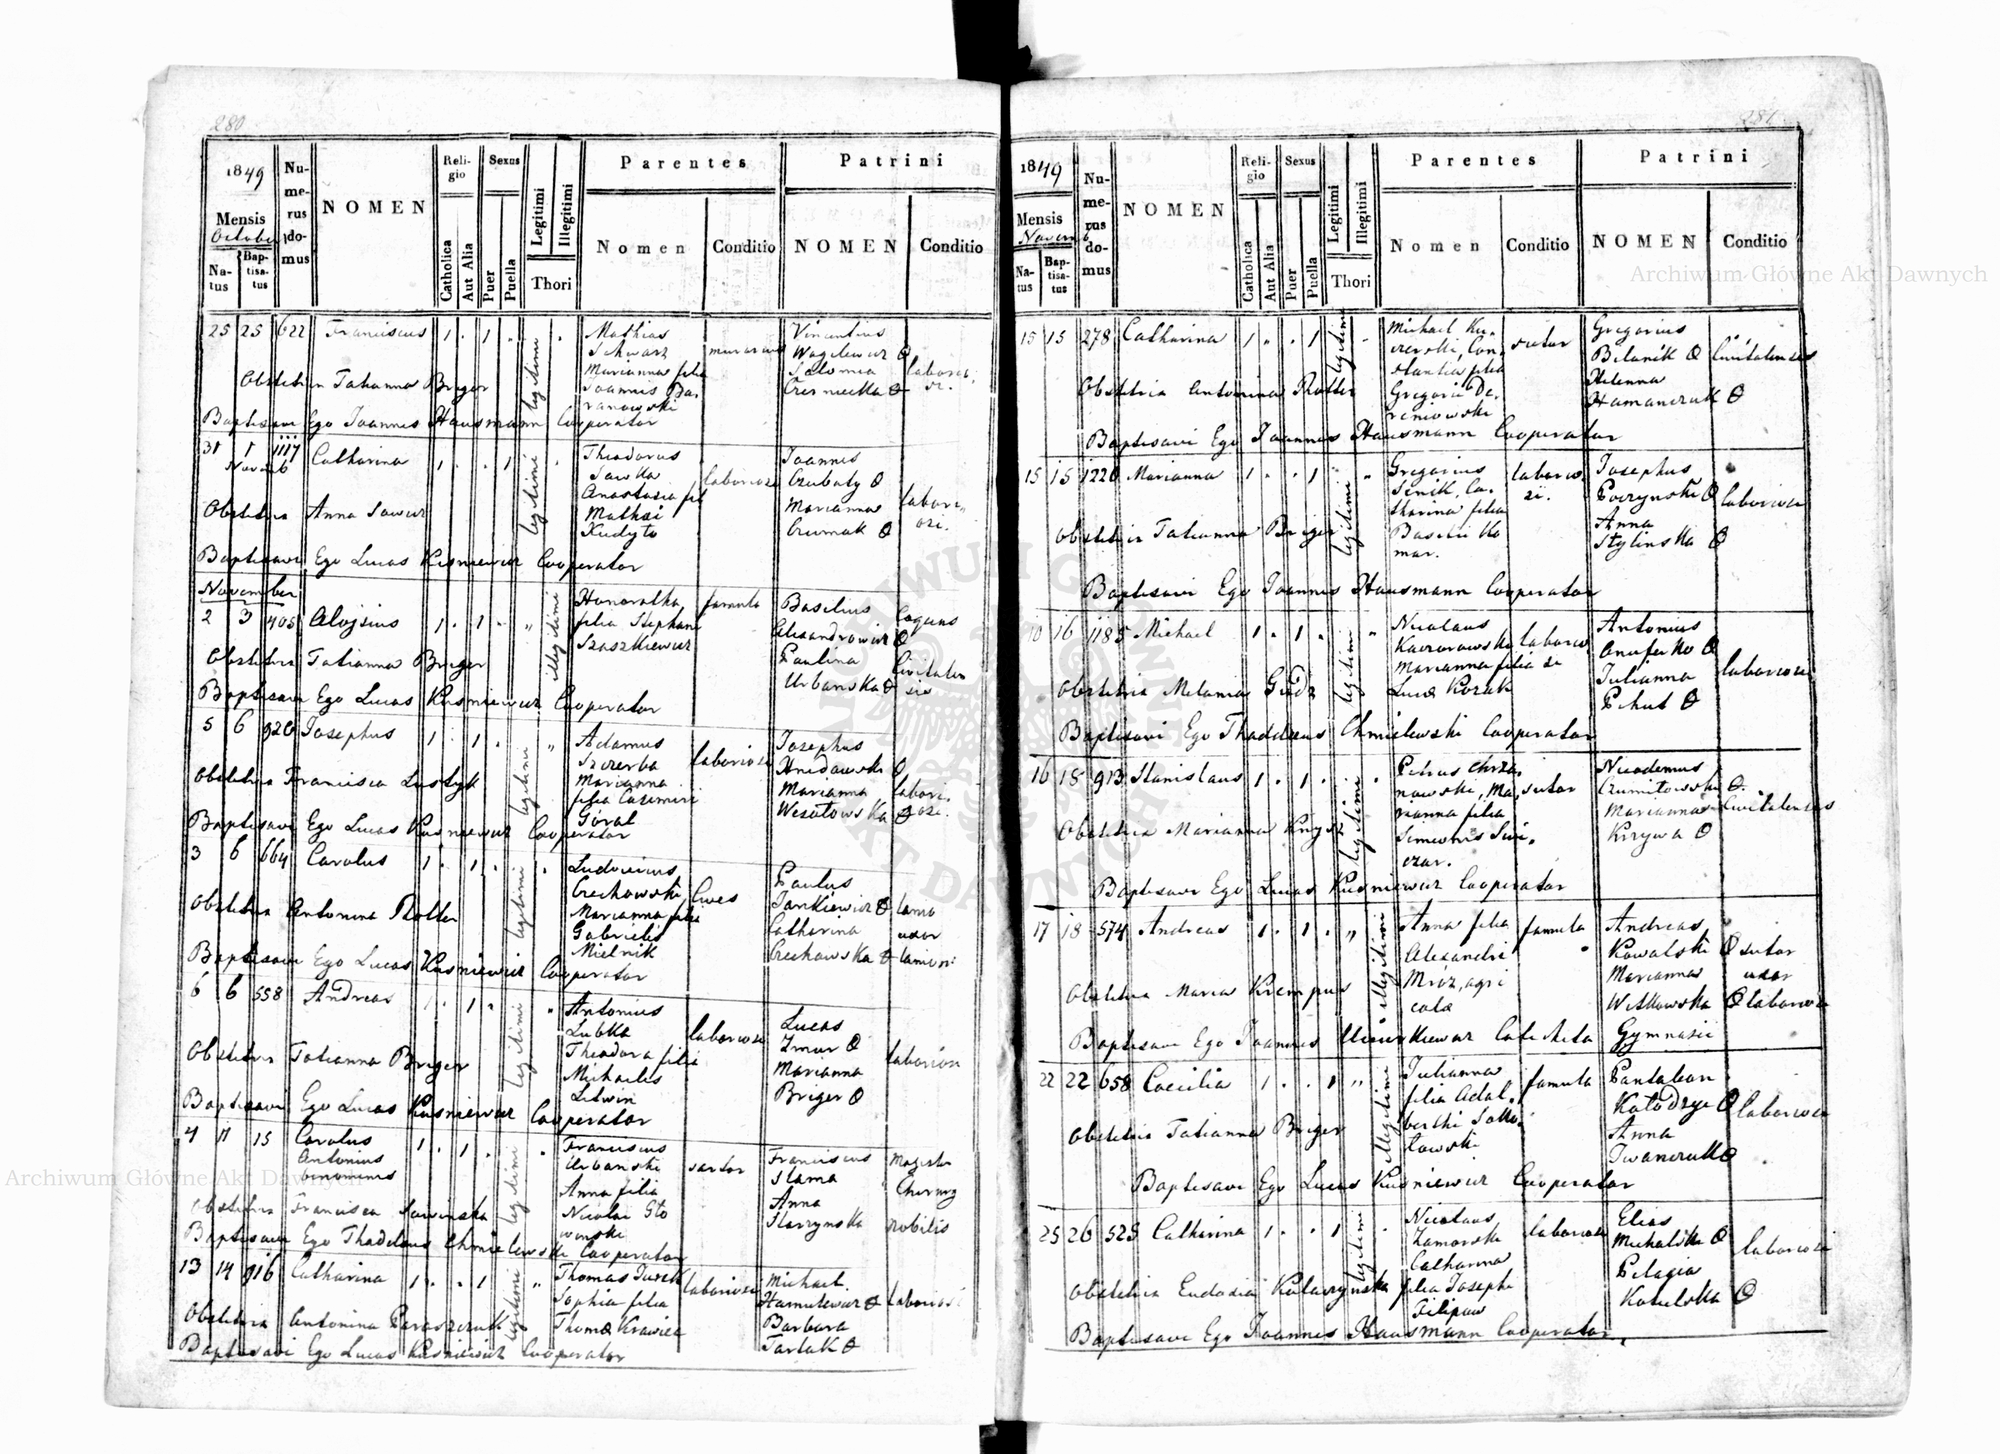 280
1849
Mensis
October
Na-
tus
Bap-
tisa-
tus
Nu-
me-
rus
do-
mus
NOMEN
Reli-
gio
Catholica
Aut Alia
Sexus
Puer
Puella
Legitimi
Illegitimi
Thori
Parentes
Nomen
Conditio
Patrini
NOMEN
Conditio
25 25 622 Franciscus 1 . 1 . legitimi
Mathias
Schwarz
Marianna filia
Joannis Ba-
ranowski
Vincentius
Salomea
Obstetrix Tatianna Briger
Baptisavi Ego Joannes Hausmann Cooperator
31 1 1117 Catharina 1 . . 1 legitimi
Novemb
Theodorus
Sawka
Anastasia fil
Mathei
Kudyto
laboriosi
Joannes
Czubaty
Marianna
Czumak
labori-
osi.
Obstetrix Anna Sawur
Baptisavi Ego Lucas Kusniewicz Cooperator
November
2 3 405 Aloysius 1 . 1 . illegitimi
Honoratha
filia Stephani
Szaszkiewicz
famula
Basilius
Alexandrowicz
Paulina
Urbanska
coquus
Civitaten
sis
Obstetrix Tatianna Briger
Baptisavi Ego Lucas Kusniewicz Cooperator
5 6 920 Josephus 1 . 1 . legitimi
Adamus
Szczerba
Marianna
filia Casimiri
Goral
laboriosi
Josephus
Hnidowski
Marianna
Wesołowska
labori-
osi.
Obstetrix Francisca Lustyk
Baptisavi Ego Lucas Kusniewicz Cooperator
3 6 664 Carolus 1 . 1 . legitimi
Ludovicus
Czechowski
Marianna filia
Gabrielis
Mielnik
Cives
Paulus
Jankiewicz
Catharina
Czechowska
lanio
uxor
lanion:
Obstetrix Antonina Rotter
Baptisavi Ego Lucas Kusniewicz Cooperator
6 6 558 Andreas 1 . 1 . legitimi
Antonius
Lubka
Theodora filia
Michaelis
Litwin
laboriosi
Lucas
Zmur
Marianna
Briger
laborios
Obstetrix Tatianna Briger
Baptisavi Ego Lucas Kusniewicz Cooperator
4 11 15 Carolus 1 . 1 . legitimi
Antonius
binominis
Franciscus
Urbanski
Anna filia
Nicolai Gło
wonski
sartor
Franciscus
Slama
Anna
Starzynska
Magister
Chirurg
nobilis
Obstetrix Francisca Sawinska
Baptisavi Ego Thaddaeus Chmielewski Cooperator
13 14 916 Catharina 1 . . 1 legitimi
Thomas Turek
Sophia filia
Thomae Krawiec
laboriosi
Michael
Hamulewicz
Barbara
Tartak
laboriosi
Obstetrix Antonina Paraszczuk
Baptisavi Ego Lucas Kusniewicz Cooperator
281
1849
Mensis
Novemb
Na-
tus
Bap-
tisa-
tus
Nu-
me-
rus
do-
mus
NOMEN
Reli-
gio
Catholica
Aut Alia
Sexus
Puer
Puella
Legitimi
Illegitimi
Thori
Parentes
Nomen
Conditio
Patrini
NOMEN
Conditio
15 15 278 Catharina 1 . . 1 legitimi
Michael Ku-
czerski, Con-
stantia filia
Gregorii De-
reniowski
sutor
Gregorius
Bilanik
Helenna
Hamanczuk
Civitatenses
Obstetrix Antonina Rotter
Baptisavi Ego Joannes Hausmann Cooperator
15 15 1220 Marianna 1 . . 1 legitimi
Gregorius
Senik, Ca-
tharina filia
Basilii Ko
mar.
laborio-
si.
Josephus
Poczynski
Anna
Stylinska
laboriosi
Obstetrix Tatianna Briger
Baptisavi Ego Joannes Hausmann Cooperator
10 16 1185 Michael 1 . 1 . legitimi
Nicolaus
Kaczorowski
Marianna filia
Lucae Kozak
laborio
si
Antonius
Onufirko
Julianna
Pehut
laboriosi
Obstetrix Melania Gudz
Baptisavi Ego Thaddaeus Chmielewski Cooperator
16 18 913 Stanislaus 1 . 1 . legitimi
Petrus Chrza-
nowski, Ma-
rianna filia
Simeonis Swi-
czar.
sutor
Nicodemus
Czumitowski
Marianna
Krzywa
Civitatenses
Obstetrix Marianna Knysz
Baptisavi Ego Lucas Kusniewicz Cooperator
17 18 574 Andreas 1 . 1 . illegitimi
Anna filia
Alexandri
Mroz, agri
cola
famula
Andreas
Kowalski
Marianna
Witkowska
sutor
uxor
laboriosi
Obstetrix Maria Krempus
Baptisavi Ego Joannes Catecheta Gymnasii
22 22 658 Caecilia 1 . . 1 illegitimi
Julianna
filia Adal-
berthi Soko-
łowski
famula
Pantaleon
Kołodzyj
Anna
Iwanczuk
laboriosi
Obstetrix Tatianna Briger
Baptisavi Ego Lucas Kusniewicz Cooperator
25 26 525 Catharina 1 . . 1 legitimi
Nicolaus
Zamorski
Catharina
filia Josephi
Filipow
laboriosi
Elias
Michalski
Pelagia
Kobulska
laboriosi
Obstetrix Eudoxia Kulaczynska
Baptisavi Ego Joannes Hausmann Cooperator.
Archiwum Główne Akt Dawnych
Archiwum Główne Akt Dawnych
ARCHIWUM GŁÓWNE AKT DAWNYCH